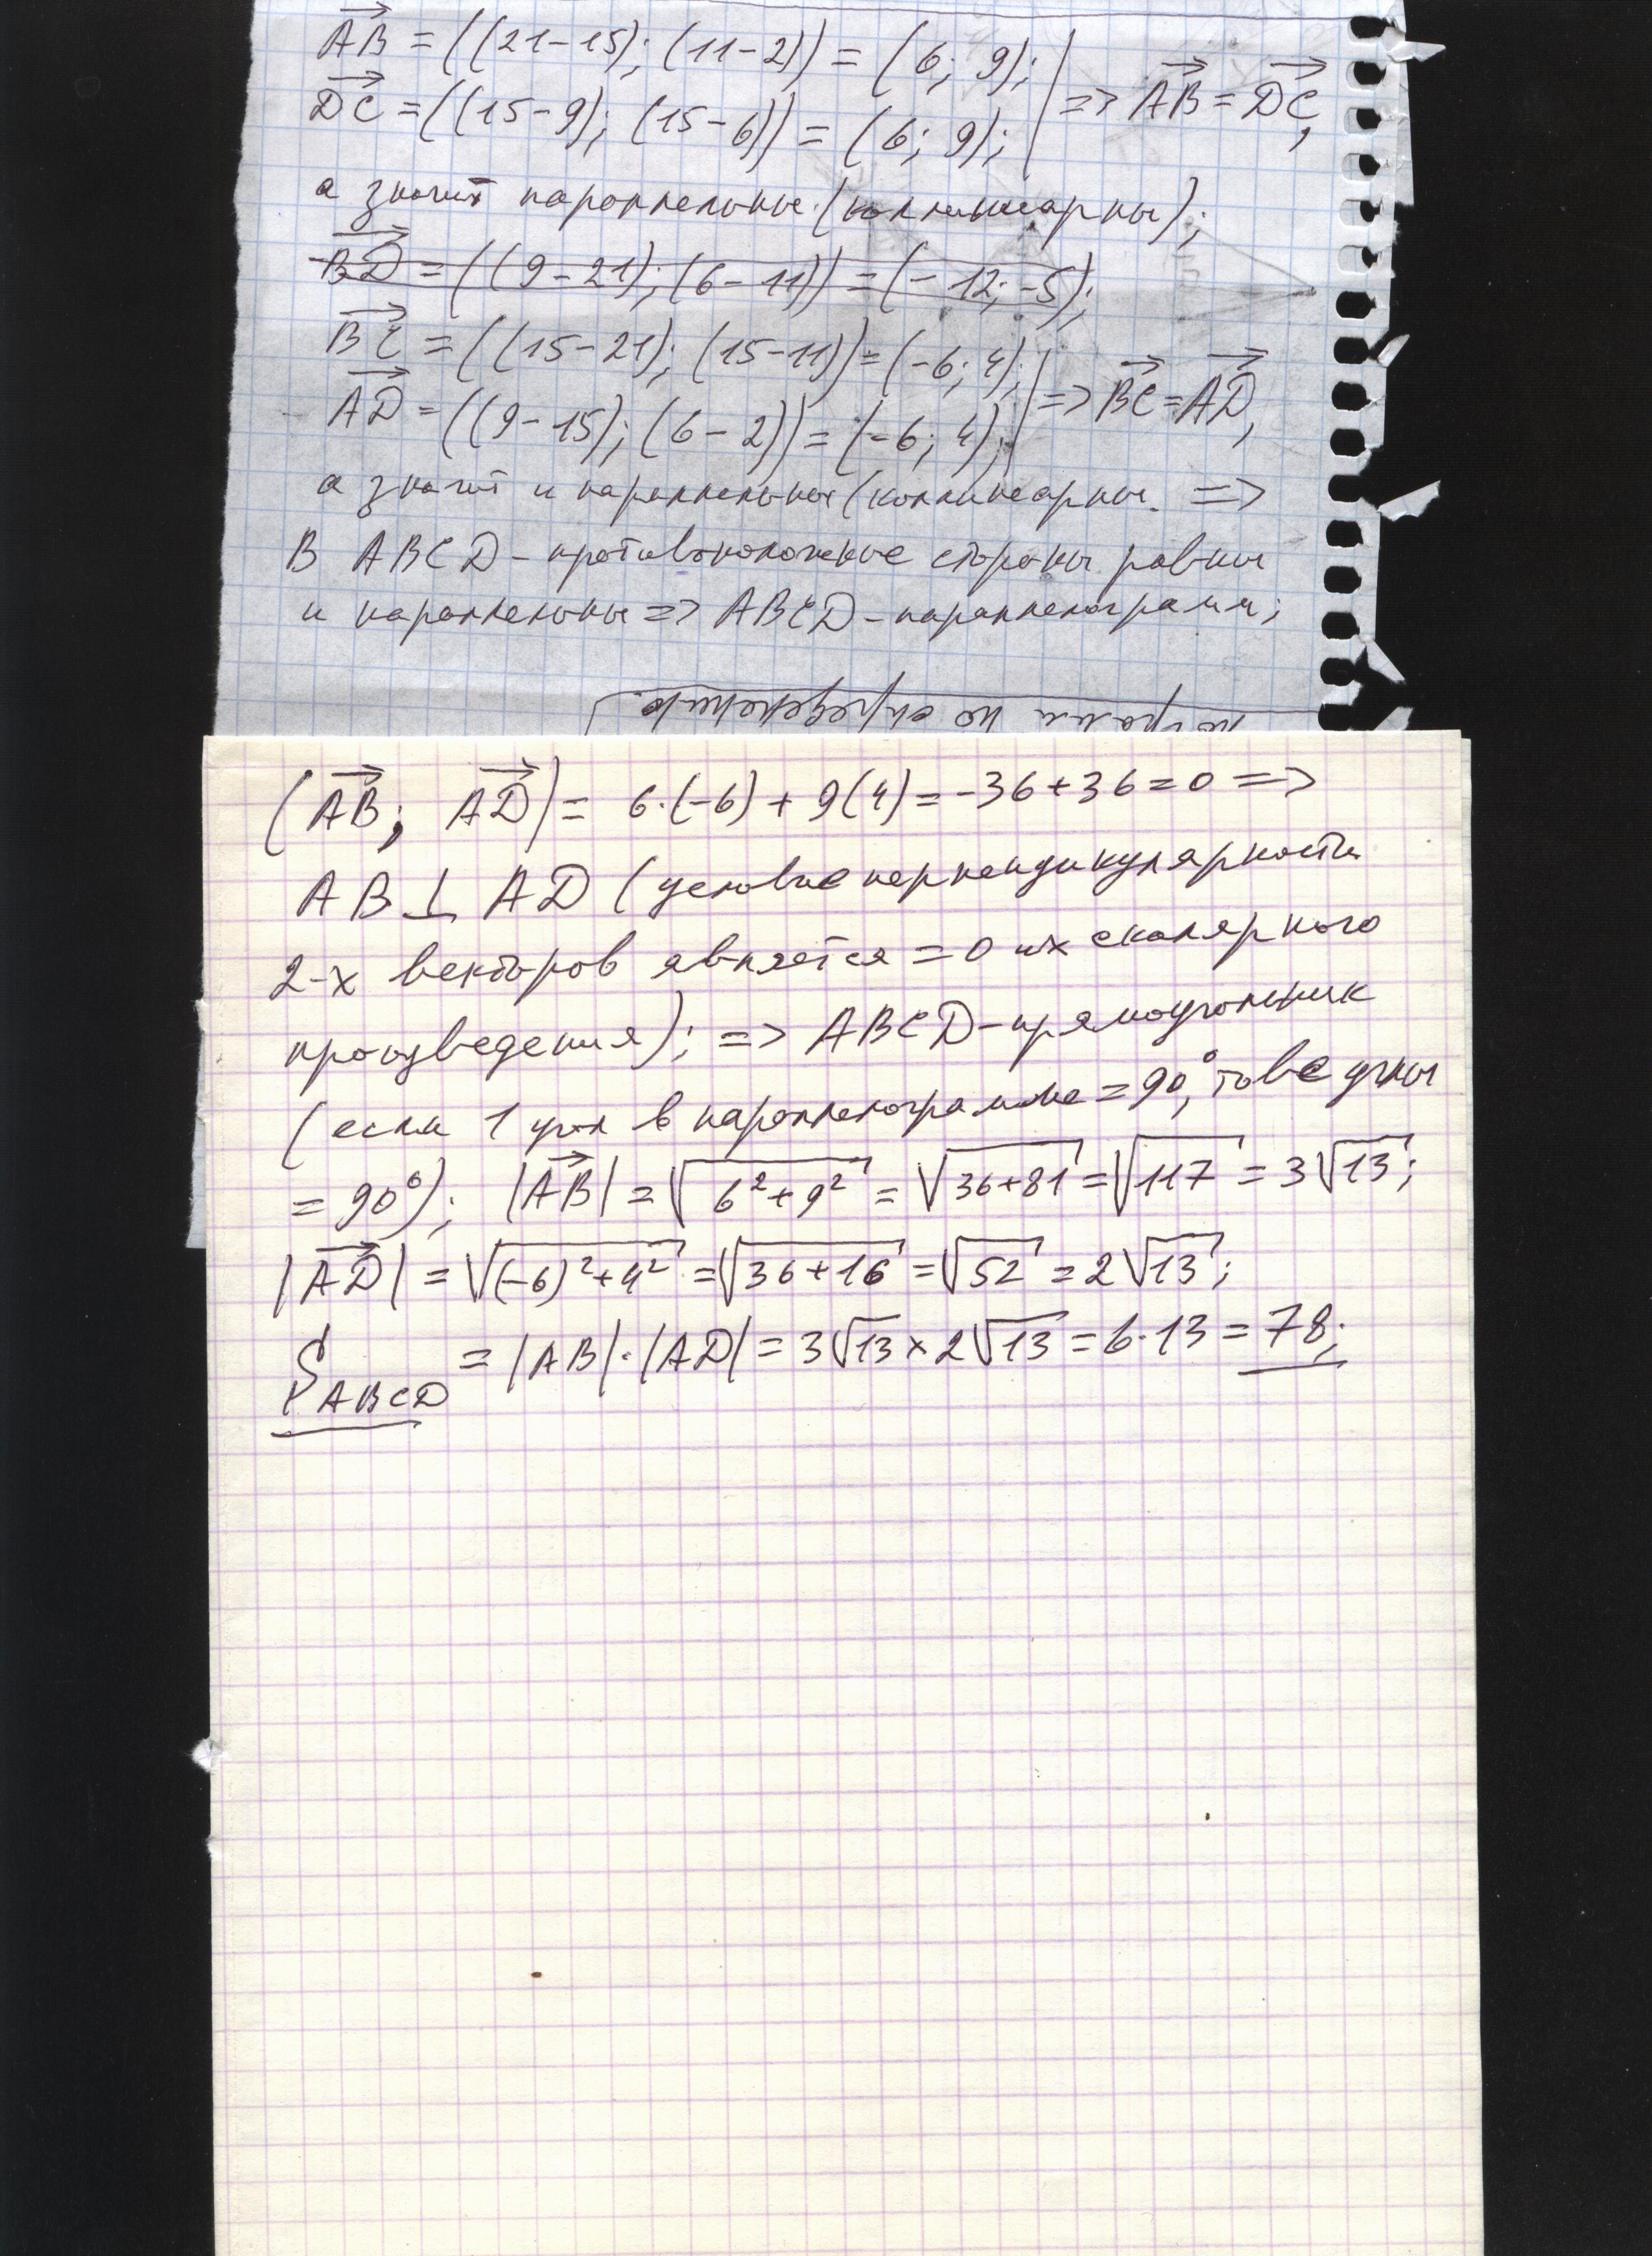 AB = ((21-15); (11-2)) = (6; 9);
DC = ((15-9); (15-6)) = (6; 9); | => AB = DC,
а значит параллельны (коллинеарны);
BD = ((9-21); (6-11)) = (-12; -5);
BC = ((15-21); (15-11)) = (-6; 4);
AD = ((9-15); (6-2)) = (-6; 4); | => BC = AD,
а значит и параллельны (коллинеарны. =>
В ABCD - противоположные стороны равны
и параллельны => ABCD - параллелограмм;
(AB; AD) = 6·(-6) + 9(4) = -36+36=0 =>
AB⊥AD (условие перпендикулярности
2-х векторов является =0 их скалярного
произведения); => ABCD - прямоугольник
(если 1 угол в параллелограмме = 90°, то все углы
= 90°); |AB| = √6²+9² = √36+81 = √117 = 3√13;
|AD| = √(-6)²+4² = √36+16 = √52 = 2√13;
S ABCD = |AB|·|AD| = 3√13 × 2√13 = 6·13 = 78;